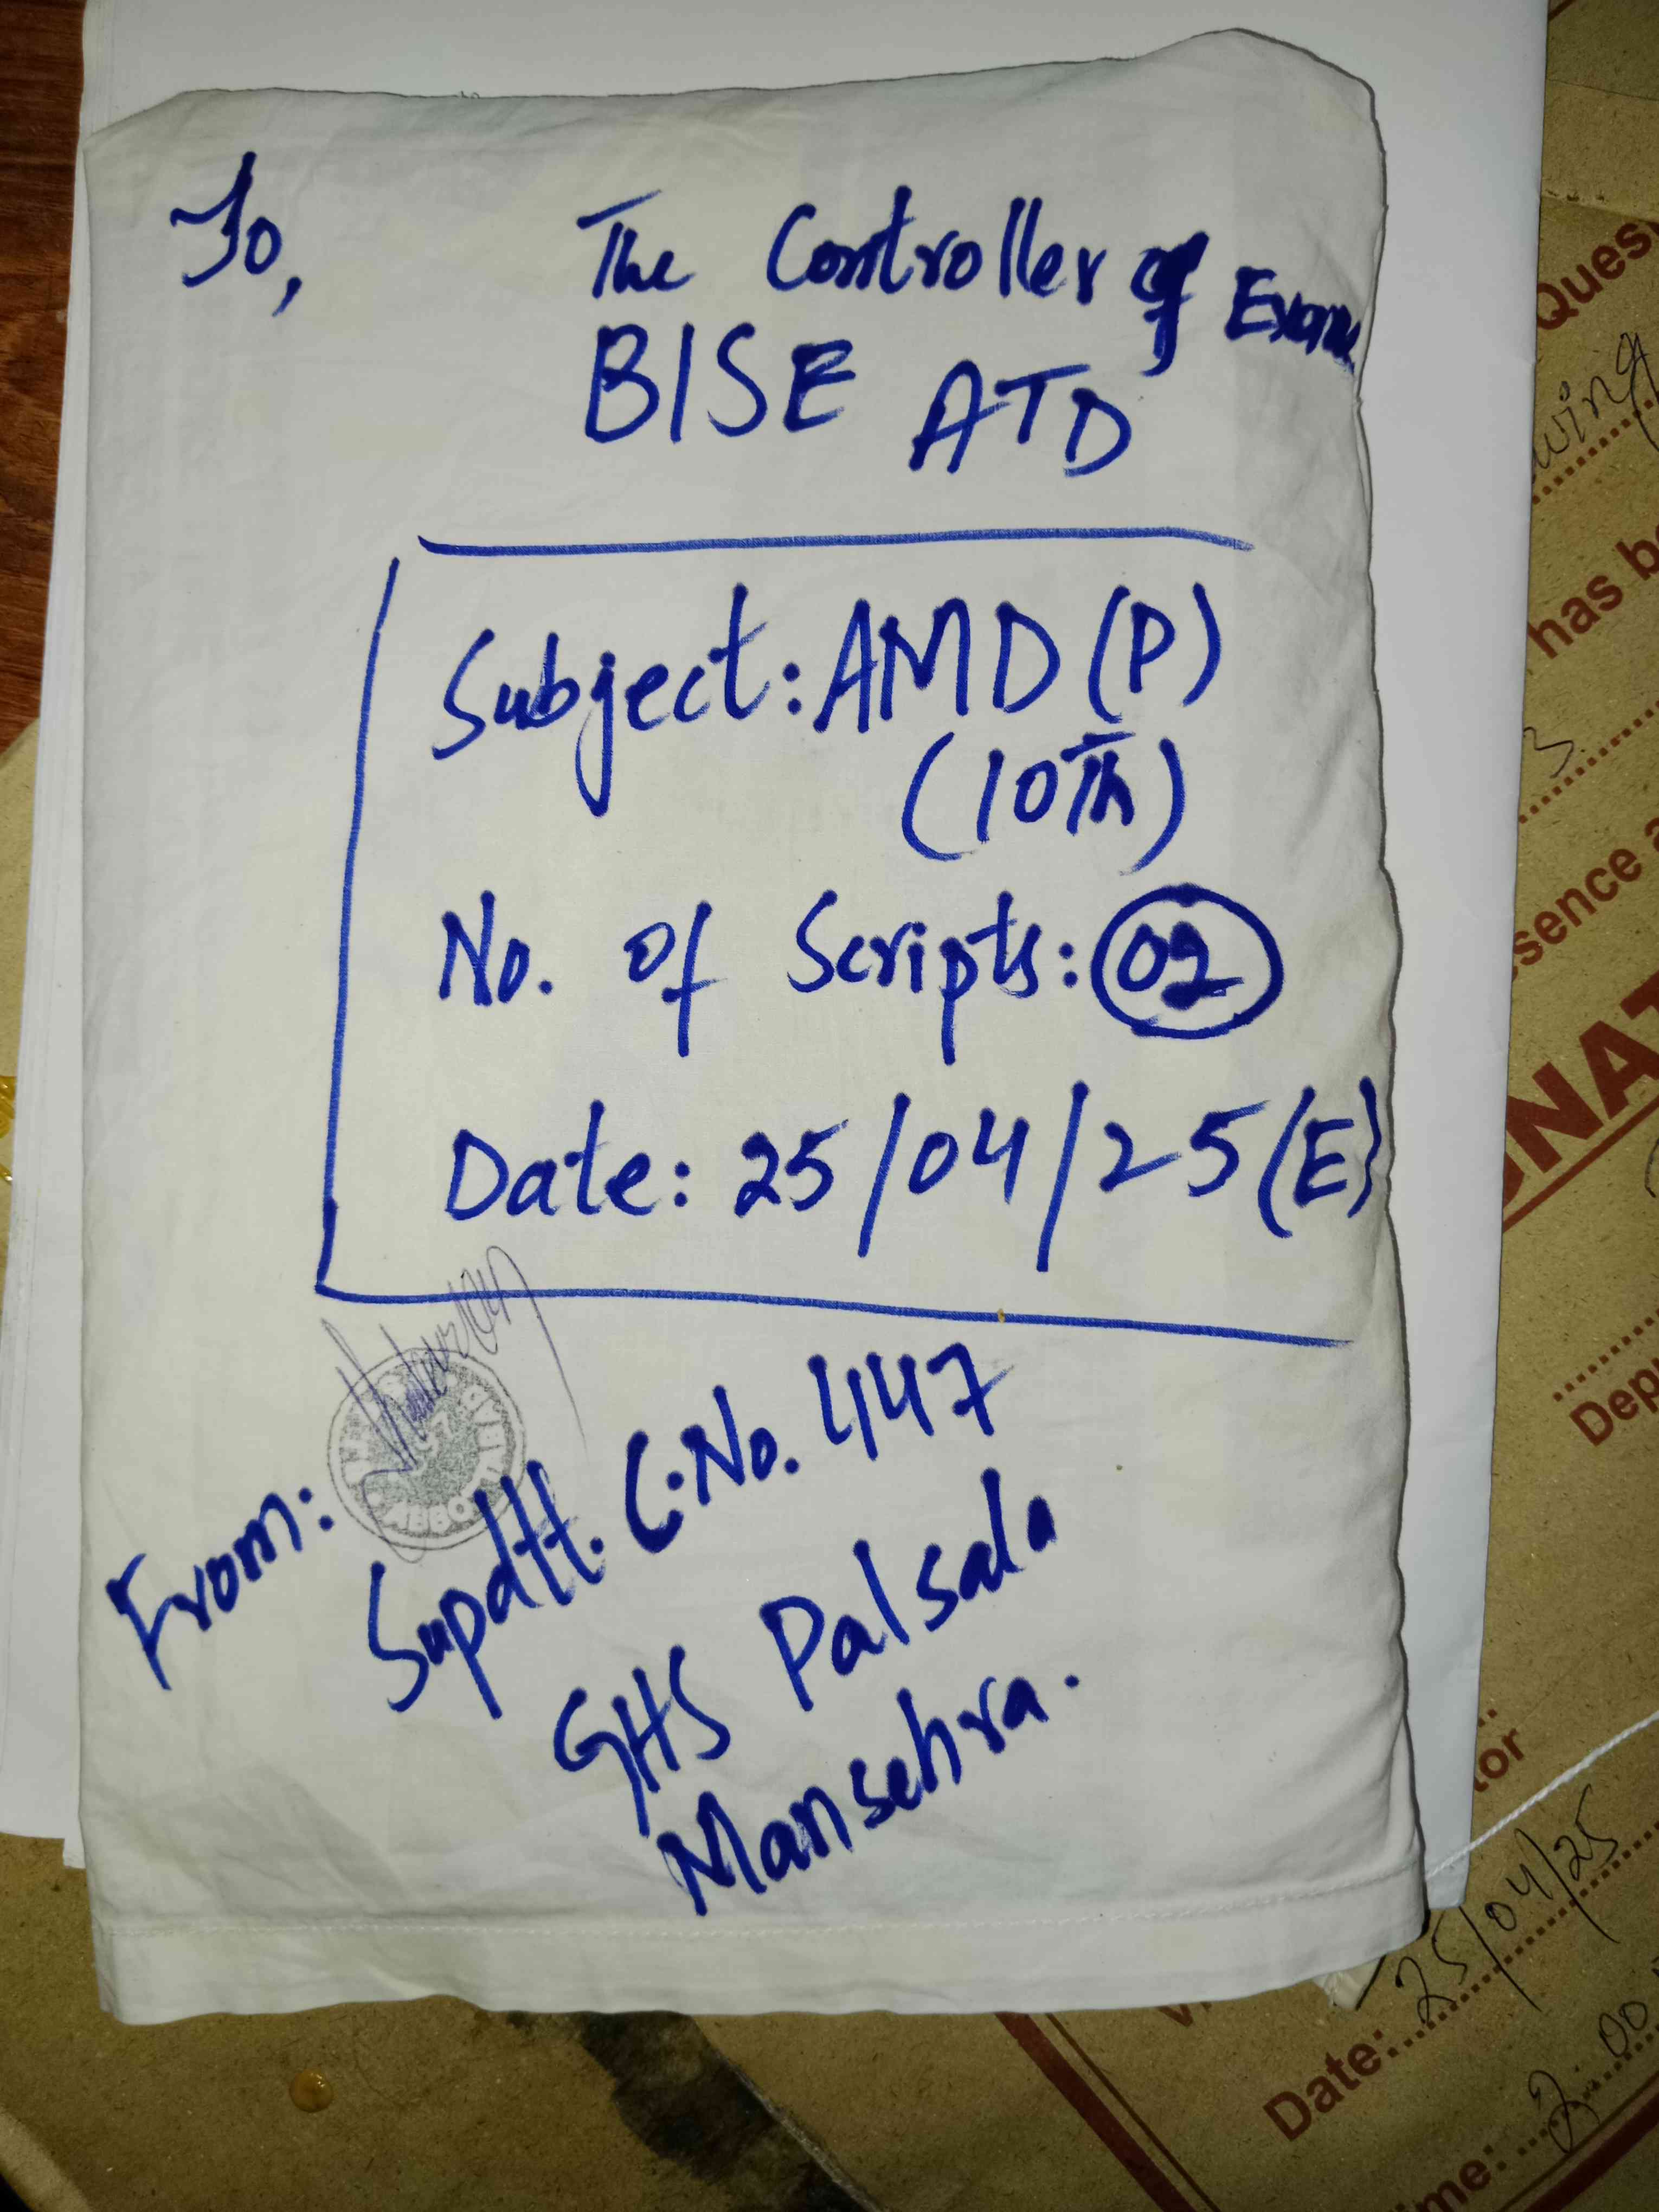 To,
The Controller of Exams
BISE ATD
Subject: AMD (P)
(10Th)
No. of Scripts: 02
Date: 25/04/25 (E)
From:
Supdtt. C.No. 447
GHS Palsala
Mansehra.
Ques
wing
has b
3
sence a
NAT
Dep
tor
Date: 25/04/25
me: 2:00